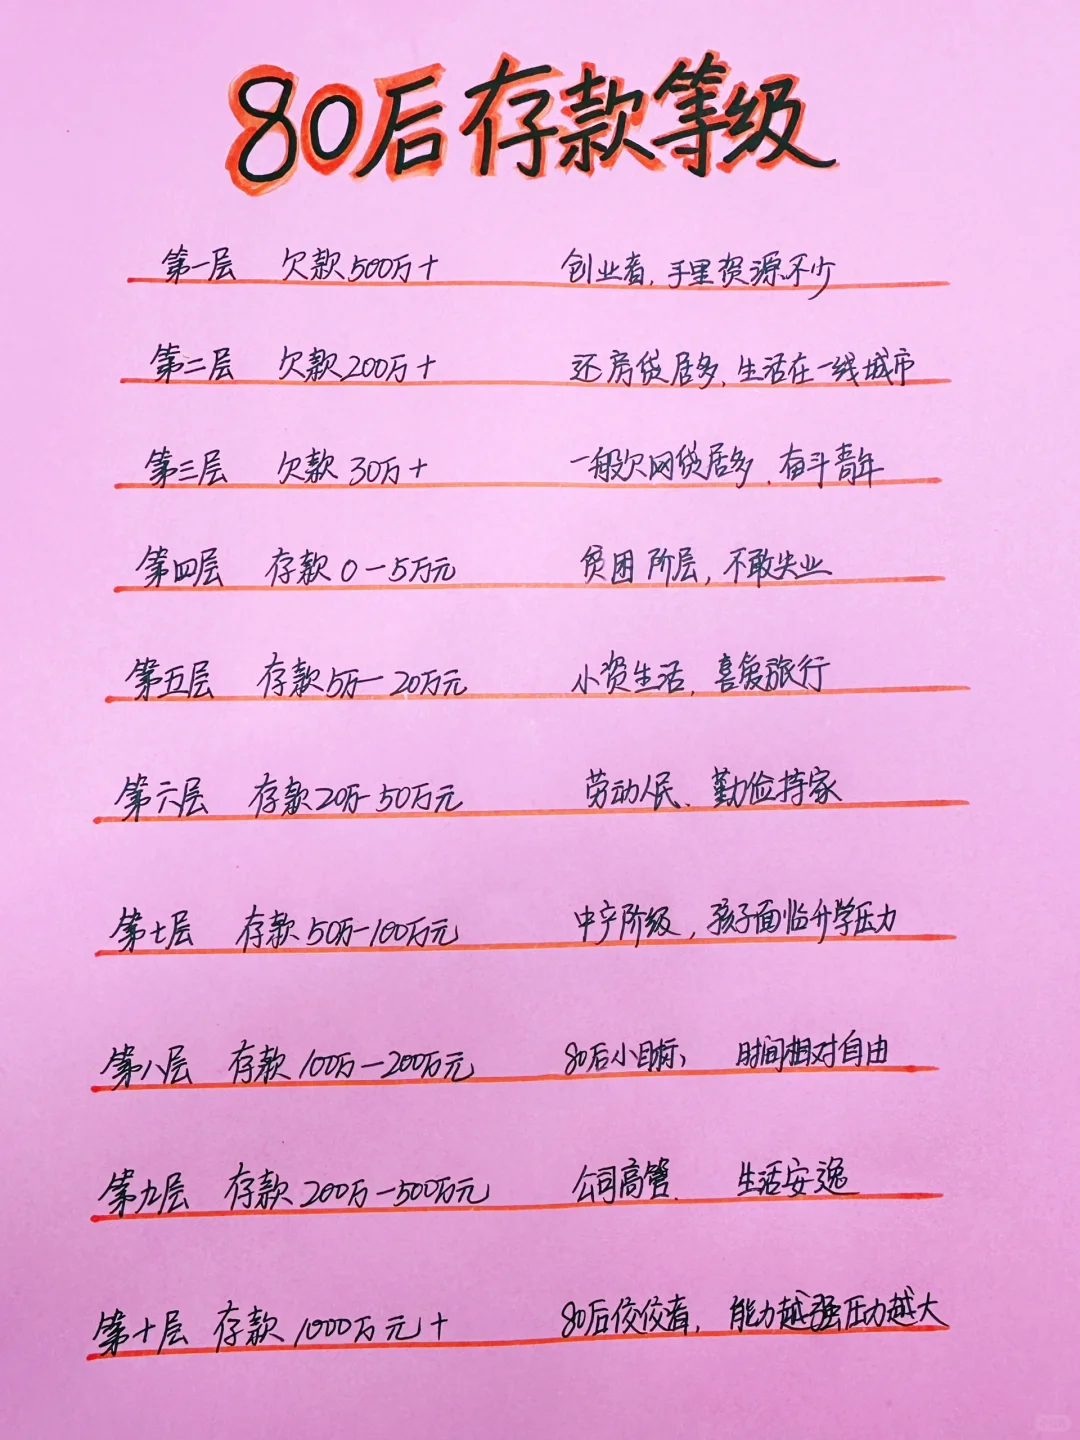 80后存款等级
第一层 欠款500万+ 创业者,手里资源不少
第二层 欠款200万+ 还房贷居多,生活在一线城市
第三层 欠款 30万+ 一般欠网贷居多,奋斗青年
第四层 存款 0-5万元 贫困阶层,不敢失业
第五层 存款5万-20万元 小资生活,喜爱旅行
第六层 存款20万-50万元 劳动人民、勤俭持家
第七层 存款50万-100万元 中产阶级,孩子面临升学压力
第八层 存款100万-200万元 80后小目标, 时间相对自由
第九层 存款200万-500万元 公司高管. 生活安逸
第十层 存款1000万元+ 80后佼佼者,能力越强压力越大